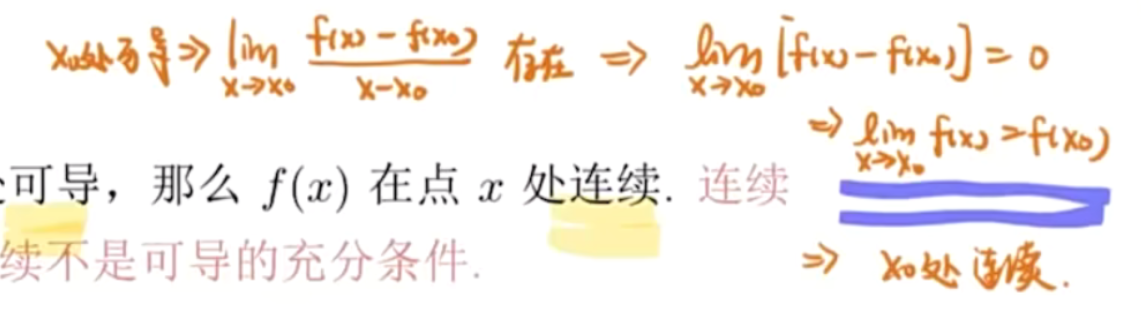 x₀处可导 ⇒ lim x→x₀ (f(x)-f(x₀))/(x-x₀) 存在 ⇒ lim x→x₀ [f(x)-f(x₀)] = 0
⇒ lim x→x₀ f(x) = f(x₀)
可导，那么 f(x) 在点 x 处连续. 连续
续不是可导的充分条件.
⇒ x₀处连续.